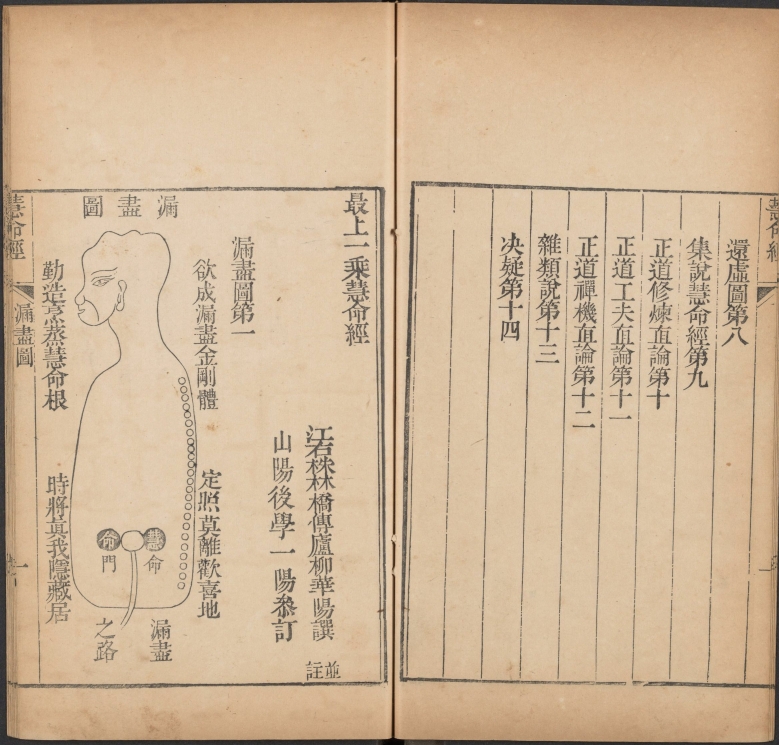 慧命經
還虛圖第八
集說慧命經第九
正道修煉直論第十
正道工夫直論第十一
正道禪機直論第十二
雜類說第十三
決疑第十四
最上一乘慧命經
傳廬柳華陽譔
並註
山陽後學一陽叅訂
漏盡圖第一
欲成漏盡金剛體
定照莫離歡喜地
漏盡圖
慧命
命門
漏盡
之路
勤造烹蒸慧命根
時將眞我隱藏居
慧命經
漏盡圖
一